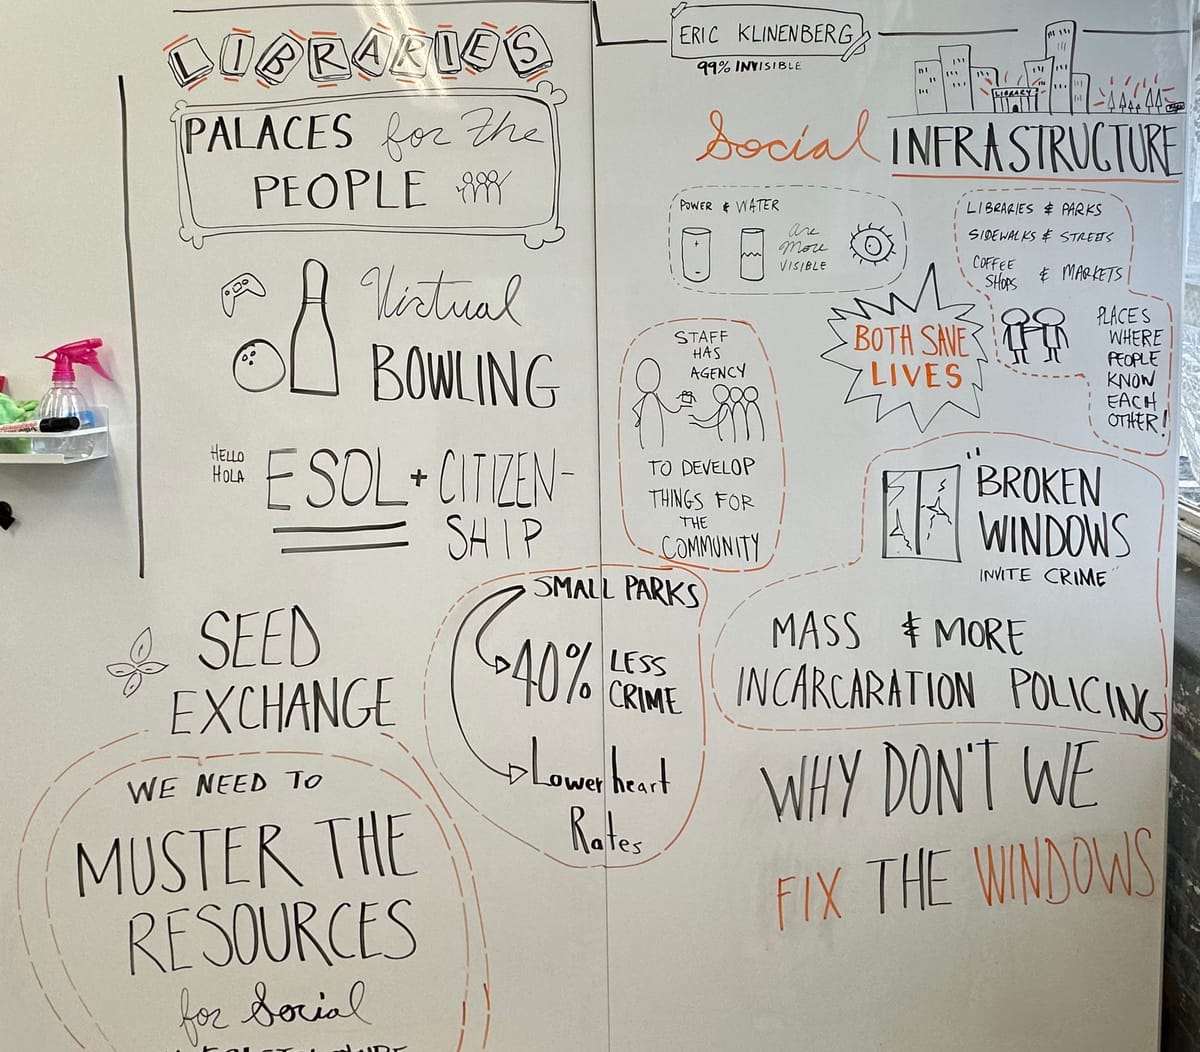 LIBRARIES
PALACES for the
PEOPLE
Virtual
BOWLING
HELLO
HOLA
ESOL + CITIZEN-
SHIP
SEED
EXCHANGE
WE NEED TO
MUSTER THE
RESOURCES
for Social
ERIC KLINENBERG
99% INVISIBLE
LIBRARY
Social INFRASTRUCTURE
POWER & WATER
are
more
VISIBLE
LIBRARIES & PARKS
SIDEWALKS & STREETS
COFFEE
SHOPS & MARKETS
PLACES
WHERE
PEOPLE
KNOW
EACH
OTHER!
BOTH SAVE
LIVES
STAFF
HAS
AGENCY
TO DEVELOP
THINGS FOR
THE
COMMUNITY
"BROKEN
WINDOWS
INVITE CRIME"
MASS & MORE
INCARCARATION POLICING
SMALL PARKS
40% LESS
CRIME
Lower heart
Rates
WHY DON'T WE
FIX THE WINDOWS